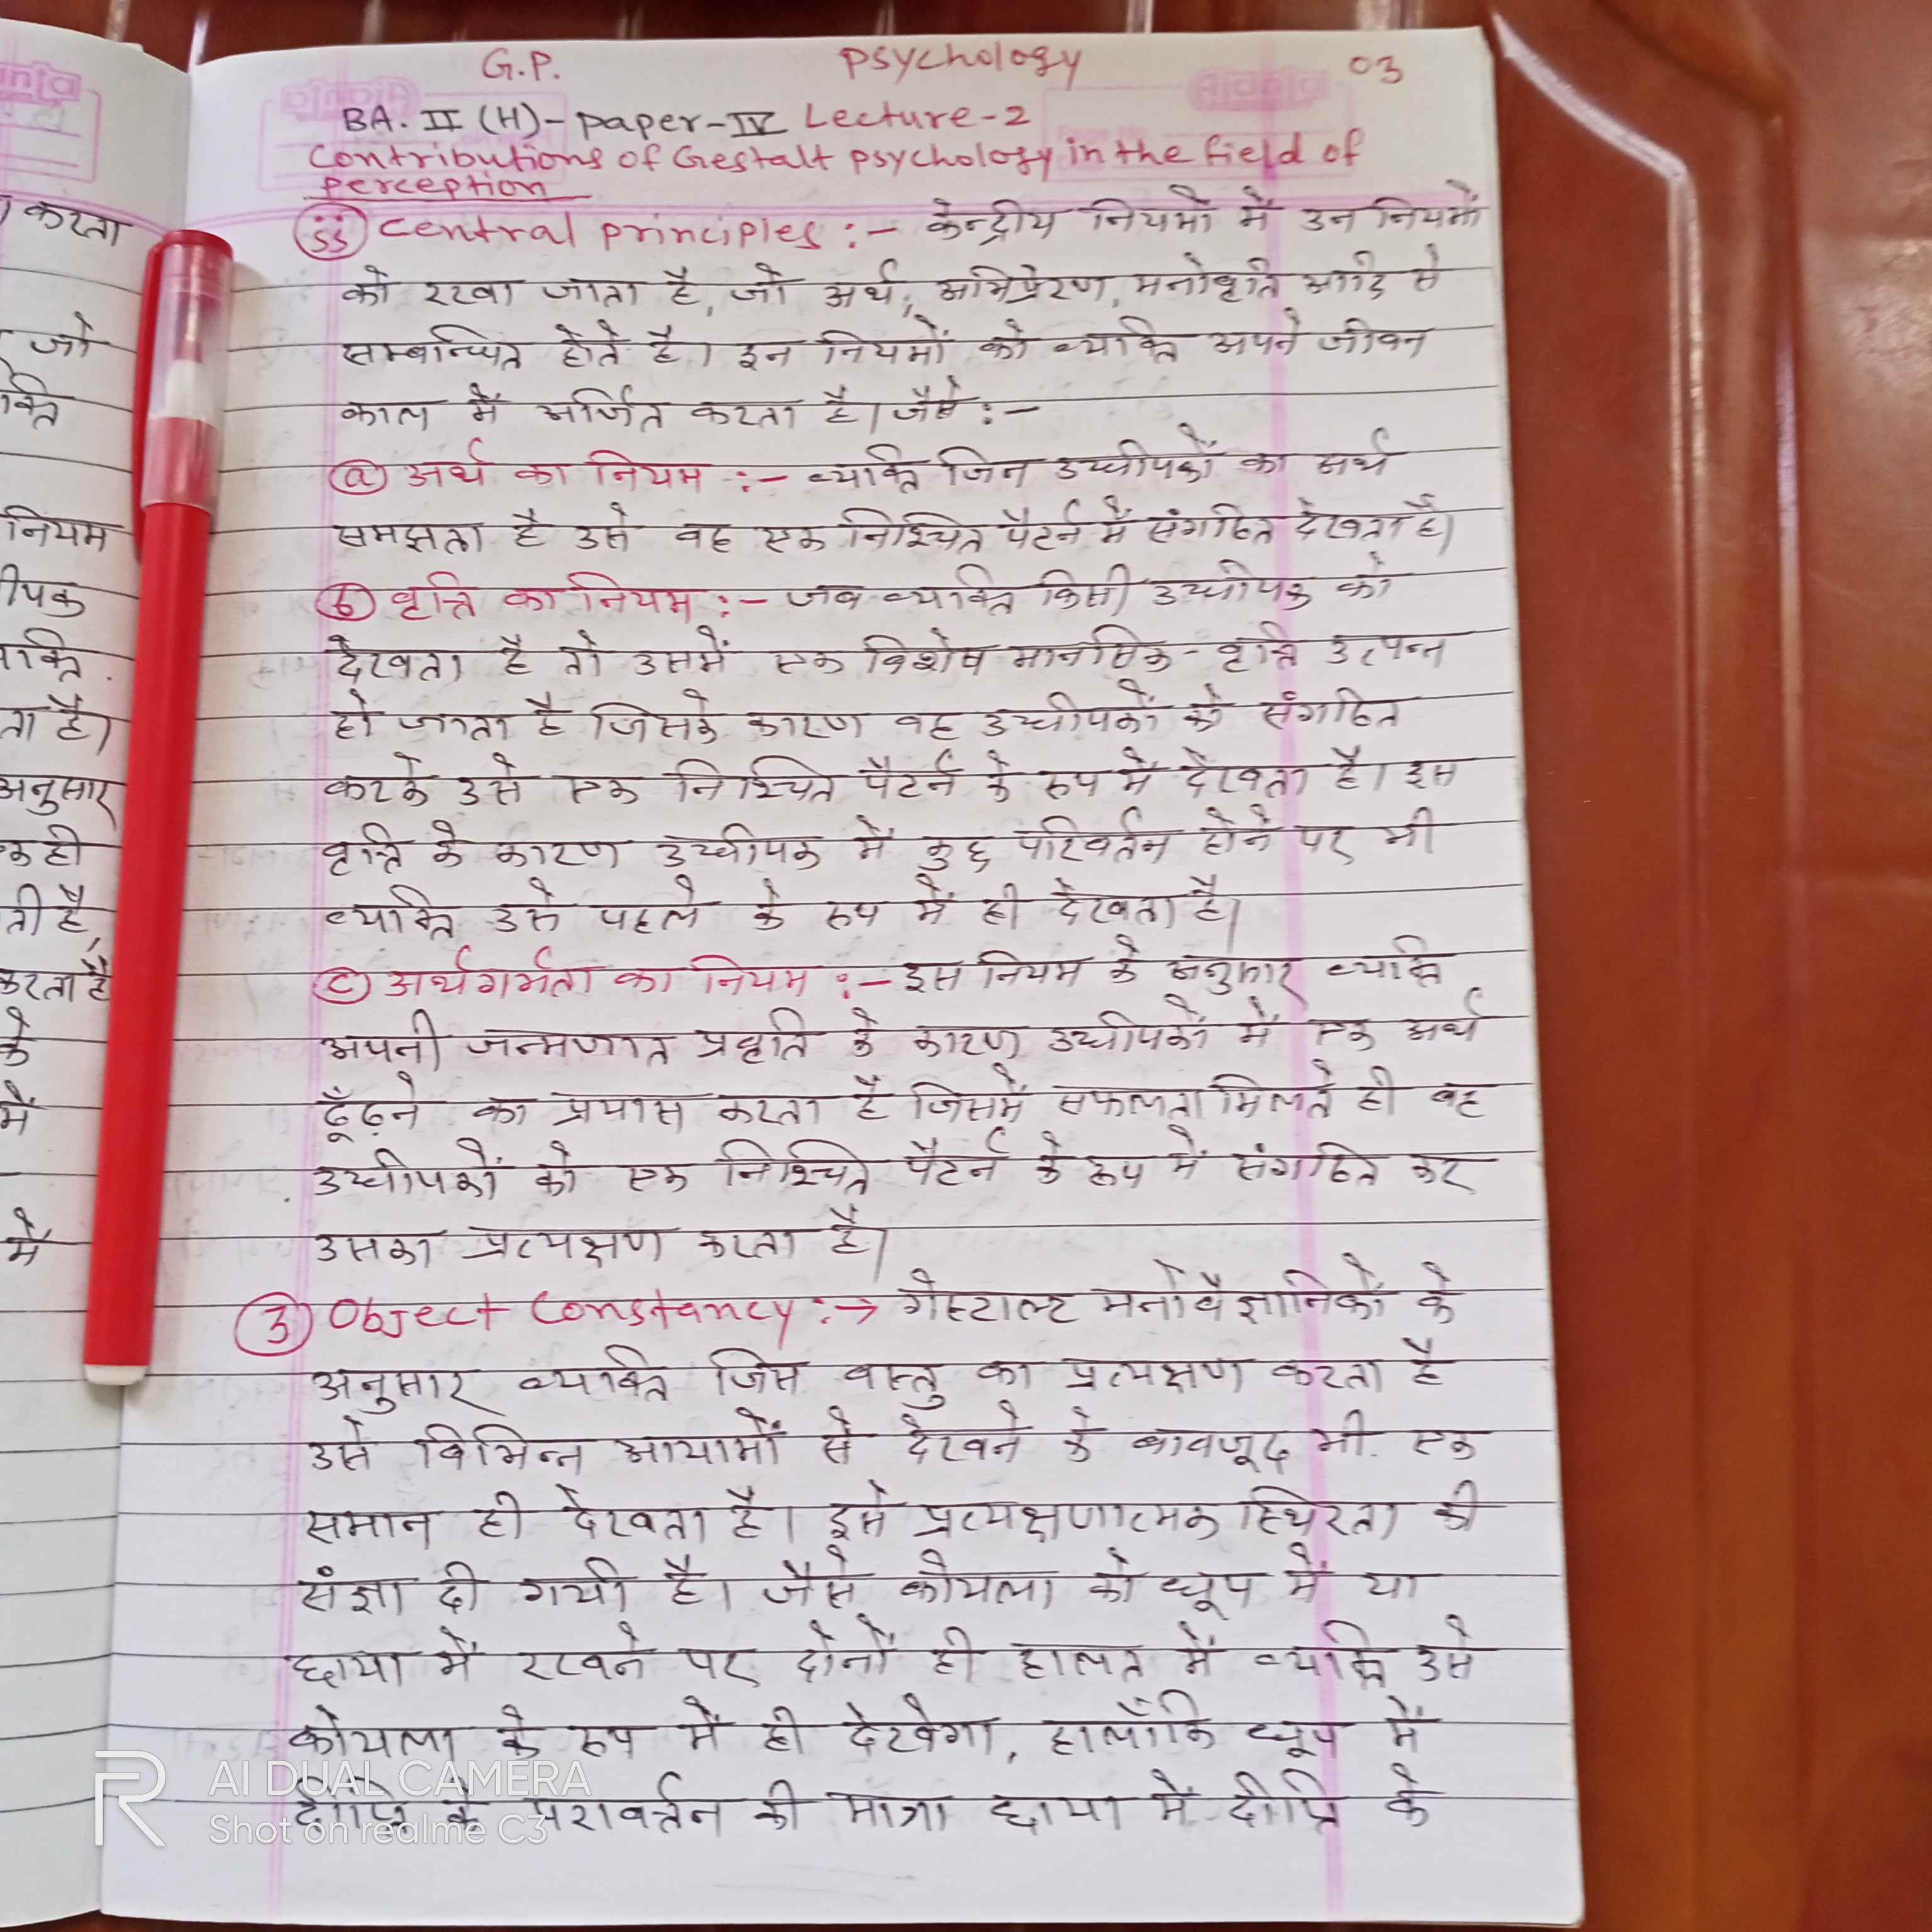 G.P. Psychology 03
BA. II (H)- paper-IV Lecture-2
Contributions of Gestalt psychology in the field of
perception
(ii) Central principles :- केन्द्रीय नियमों में उन नियमों
को रखा जाता है, जो अर्थ, अभिप्रेरण, मनोवृति आदि से
सम्बन्धित होते है। इन नियमों को व्यक्ति अपने जीवन
काल में अर्जित करता है। जैसे :-
(a) अर्थ का नियम :- व्यक्ति जिन उद्दीपकों का अर्थ
समझता है उसे वह एक निश्चित पैटर्न में संगठित देखता है।
(b) वृत्ति का नियम :- जब व्यक्ति किसी उद्दीपक को
देखता है तो उसमें एक विशेष मानसिक-वृत्ति उत्पन्न
हो जाता है जिसके कारण वह उद्दीपकों को संगठित
करके उसे एक निश्चित पैटर्न के रूप में देखता है। इस
वृत्ति के कारण उद्दीपक में कुछ परिवर्तन होने पर भी
व्यक्ति उसे पहले के रूप में ही देखता है।
(c) अर्थगर्भता का नियम :- इस नियम के अनुसार व्यक्ति
अपनी जन्मजात प्रवृति के कारण उद्दीपकों में एक अर्थ
ढूँढ़ने का प्रयास करता है जिसमें सफलता मिलते ही वह
उद्दीपकों को एक निश्चित पैटर्न के रूप में संगठित कर
उसका प्रत्यक्षण करता है।
(3) Object Constancy :→ गेस्टाल्ट मनोवैज्ञानिकों के
अनुसार व्यक्ति जिस वस्तु का प्रत्यक्षण करता है
उसे विभिन्न आयामों से देखने के बावजूद भी एक
समान ही देखता है। इसे प्रत्यक्षणात्मक स्थिरता की
संज्ञा दी गयी है। जैसे कोयला को धूप में या
छाया में रखने पर दोनों ही हालत में व्यक्ति उसे
कोयला के रूप में ही देखेगा, हालाँकि धूप में
दीप्ति के परावर्तन की मात्रा छाया में दीप्ति के
करता
जो
क्ति
नियम
ीपक
यक्ति
ता है।
अनुसार
क ही
ती है,
करता है
के
में
में
AI DUAL CAMERA
Shot on realme C3